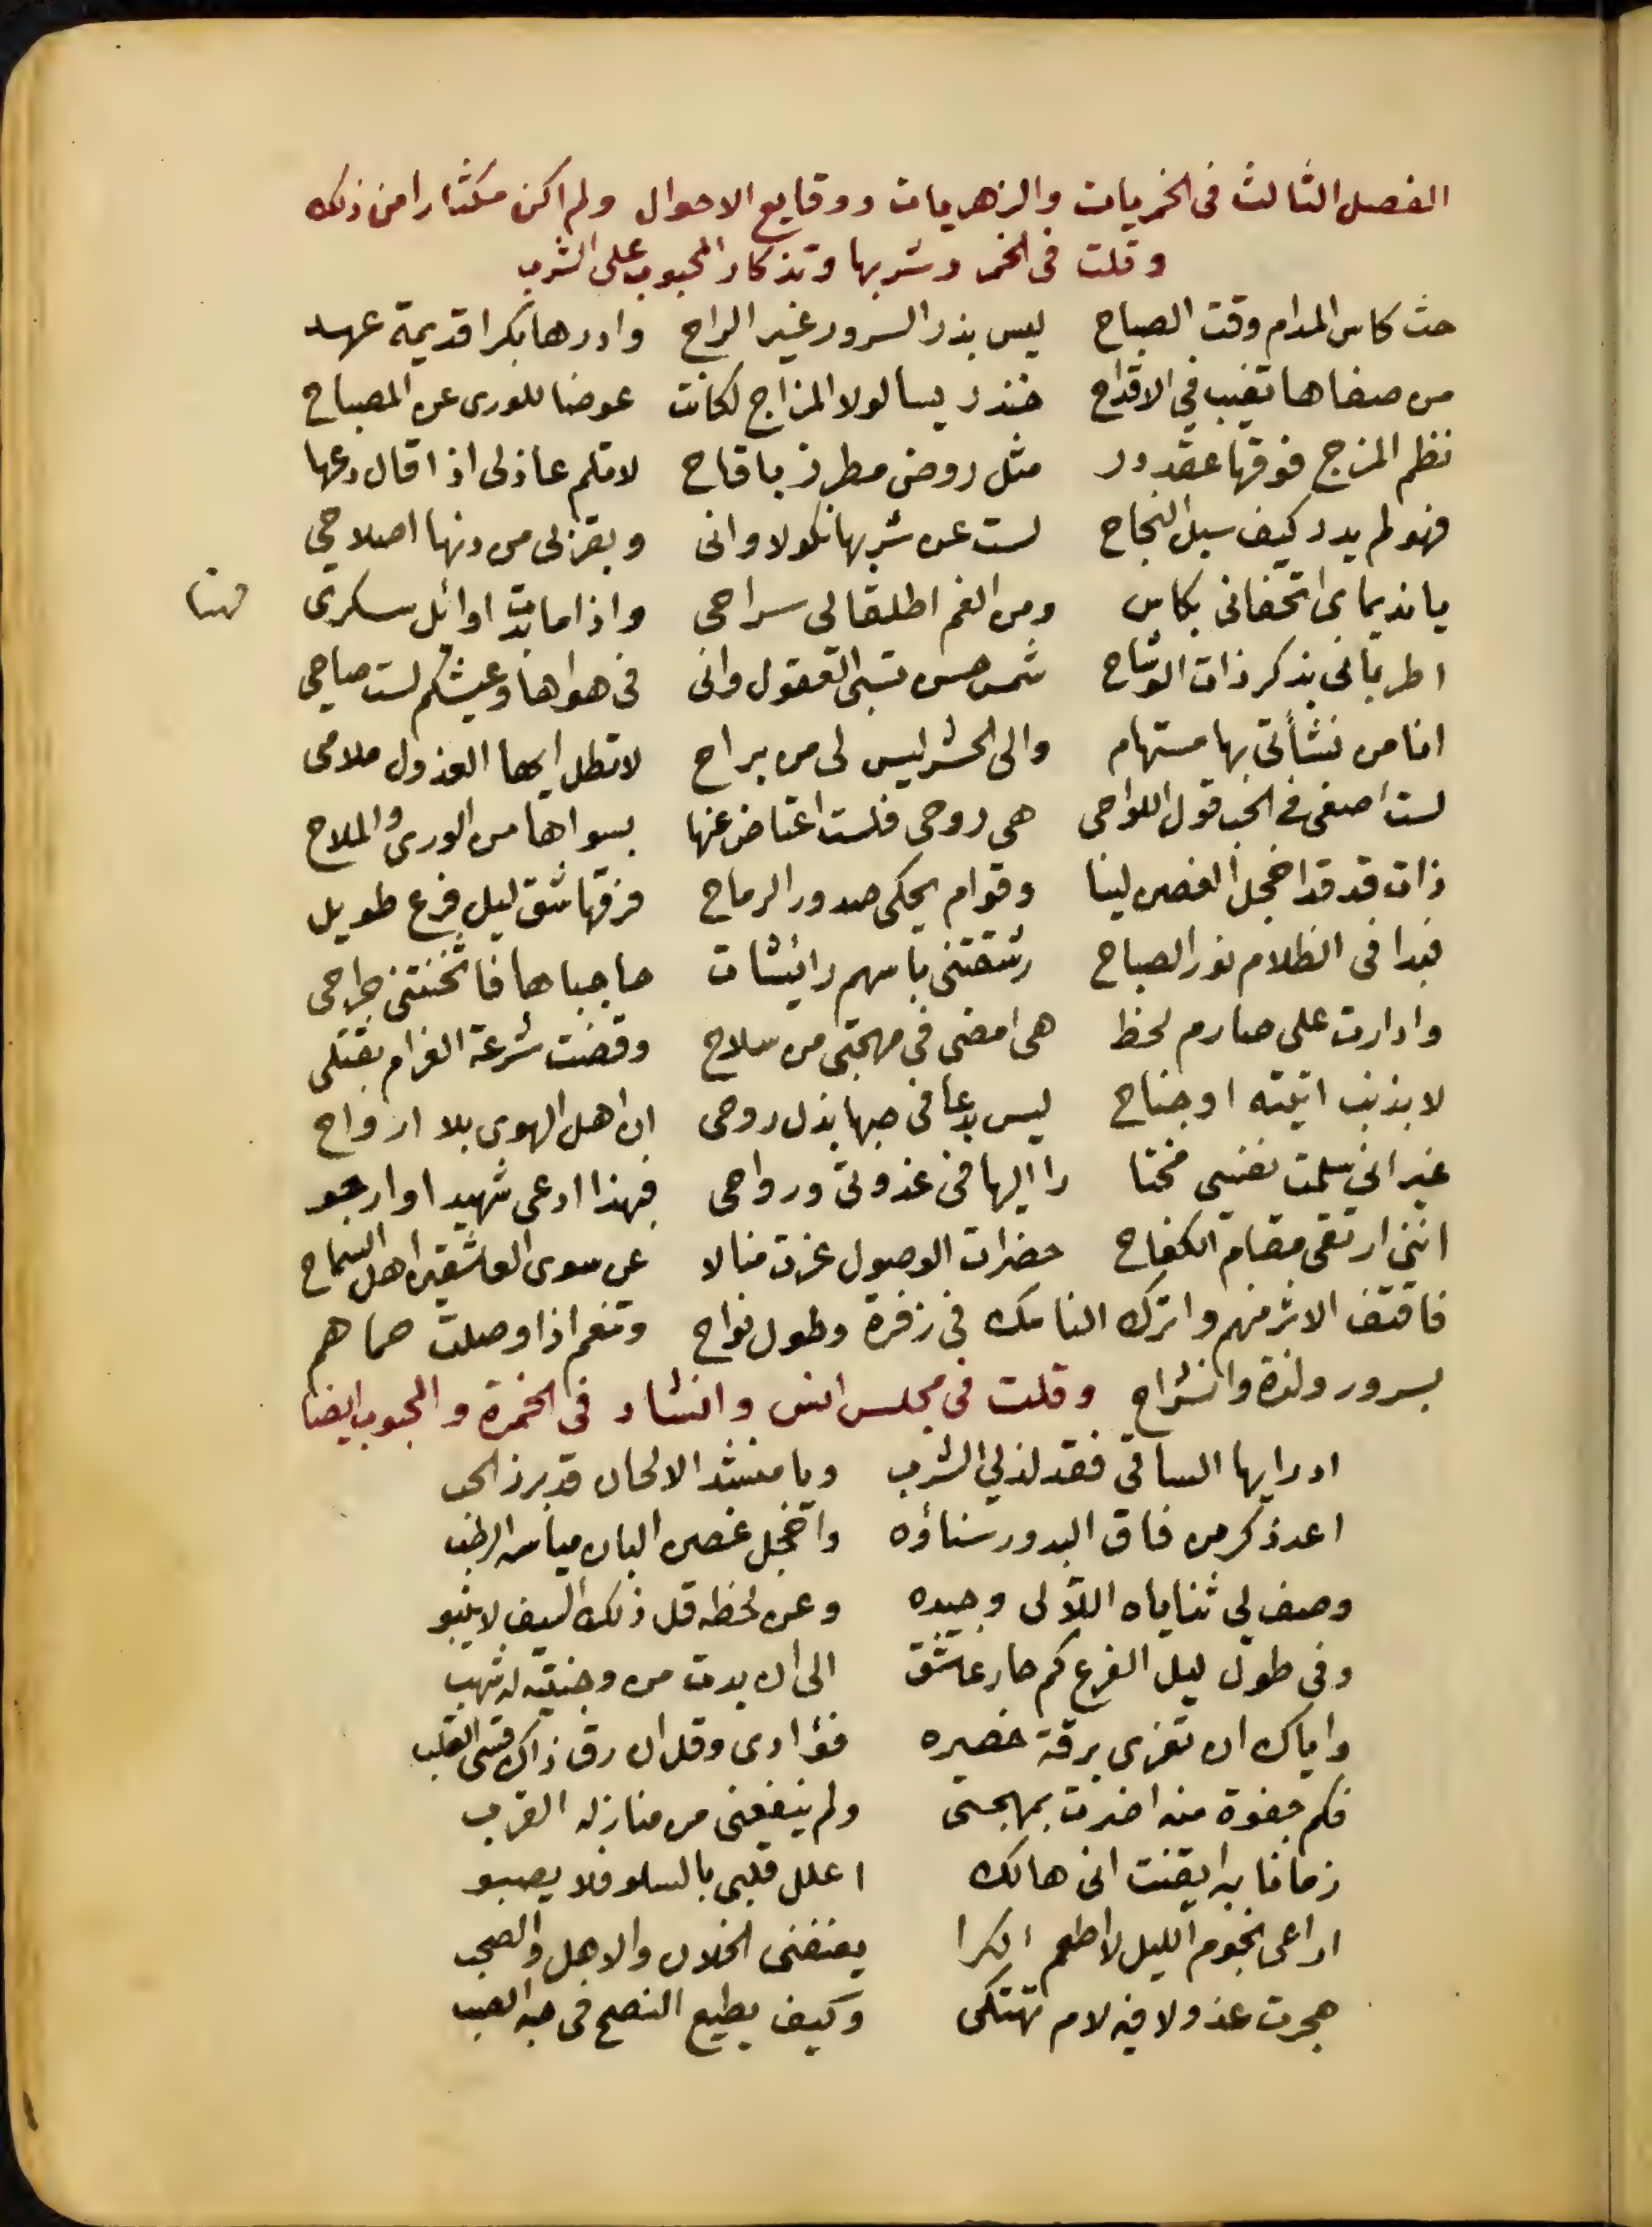 الفصل الثالث فى الخمريات والزهريات ووقايع الاحوال ولم اكن مكثارا من ذلك
وقلت فى الخمر وشربها وتذكار المحبوب على الشرب
حث كاس المدام وقت الصباح ليس بذر السرور غير الراح وادرها بكرا قديمة عهد
من صفاها تغيب في الاقداح خندريسا لولا المزاج لكانت عوضا للورى عن المصباح
نظم المزج فوقها عقد در مثل روض مطرز باقاح لا تلم عاذلى اذا قال دعها
فهو لم يدر كيف سبل النجاح لست عن شربها نكولا وانى وبقربى من دنها اصلاحي
يا نديماى اتحفانى بكاس ومن الغم اطلقا لي سراحى واذا ما بدت اوائل سكرى
اطربانى بذكر ذات الوشاح شمس حسن تسبى العقول وانى فى هواها وعيشكم لست صاحي
انا من نشأتى بها مستهام والى الحشر ليس لى من براح لا تطل ايها العذول ملامى
لست اصغى فى الحب قول اللواحى هى روحى فلست اعتاض عنها بسواها من الورى والملاح
ذات قد قد اخجل الغصن لينا وقوام يحكى صدور الرماح فرقها شق ليل فرع طويل
فبدا فى الظلام نور الصباح رشقتنى باسهم رائشات حاجباها فاثخنتنى جراحى
وادارت على صارم لحظ هى امضى فى مهجتى من سلاح وقضت شرعة الغرام بقتلى
لا بذنب اتيته او جناح ليس بدعا فى حبها بذل روحى ان اهل الهوى بلا ارواح
غير انى سلمت نفسى مختا را اليها فى غدوتى ورواحى فبهذا ادعى شهيدا وارجو
اننى ارتقى مقام الكفاح حضرات الوصول عزت منالا عن سوى العاشقين اهل السماح
فاقتف الاثر منهم واترك الناسك فى زفرة وطول نواح وتنعم اذا وصلت حماهم
بسرور ولذة وانشراح وقلت فى مجلس انس وانشاد فى الخمرة والمحبوب ايضا
ادر ايها الساقى فقد لذ لي الشرب ويا منشد الالحان قد برز الحب
اعد ذكر من فاق البدور سناؤه واخجل غصن البان مياسه الرطب
وصف لي ثناياه اللآلى وجيده وعن لحظه قل ذلك السيف لا ينبو
وفى طول ليل الفرع كم حار عاشق الى ان بدت من وجنتيه له شهب
واياك ان تغرى برقة خصره فؤادى وقل ان رق ذاك قسى القلب
فكم جفوة منه اضرت بمهجتى ولم ينفعنى من منازله القرب
زمانا به ايقنت انى هالك اعلل قلبى بالسلو فلا يصبو
اراعى نجوم الليل لا اطعم الكرا يعنفنى الخلان والاهل والصحب
هجرت عذولا فيه لام تهتكى وكيف يطيع النصح فى حبه الصب